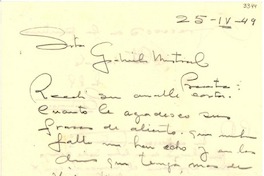 2344
25-IV-49
Srta Gabriela Mistral
Presente:
Recibí su amable carta.
Cuanto le agradesco sus
frases de aliento, que
falta me han echo y en los
dias que tengo mas de